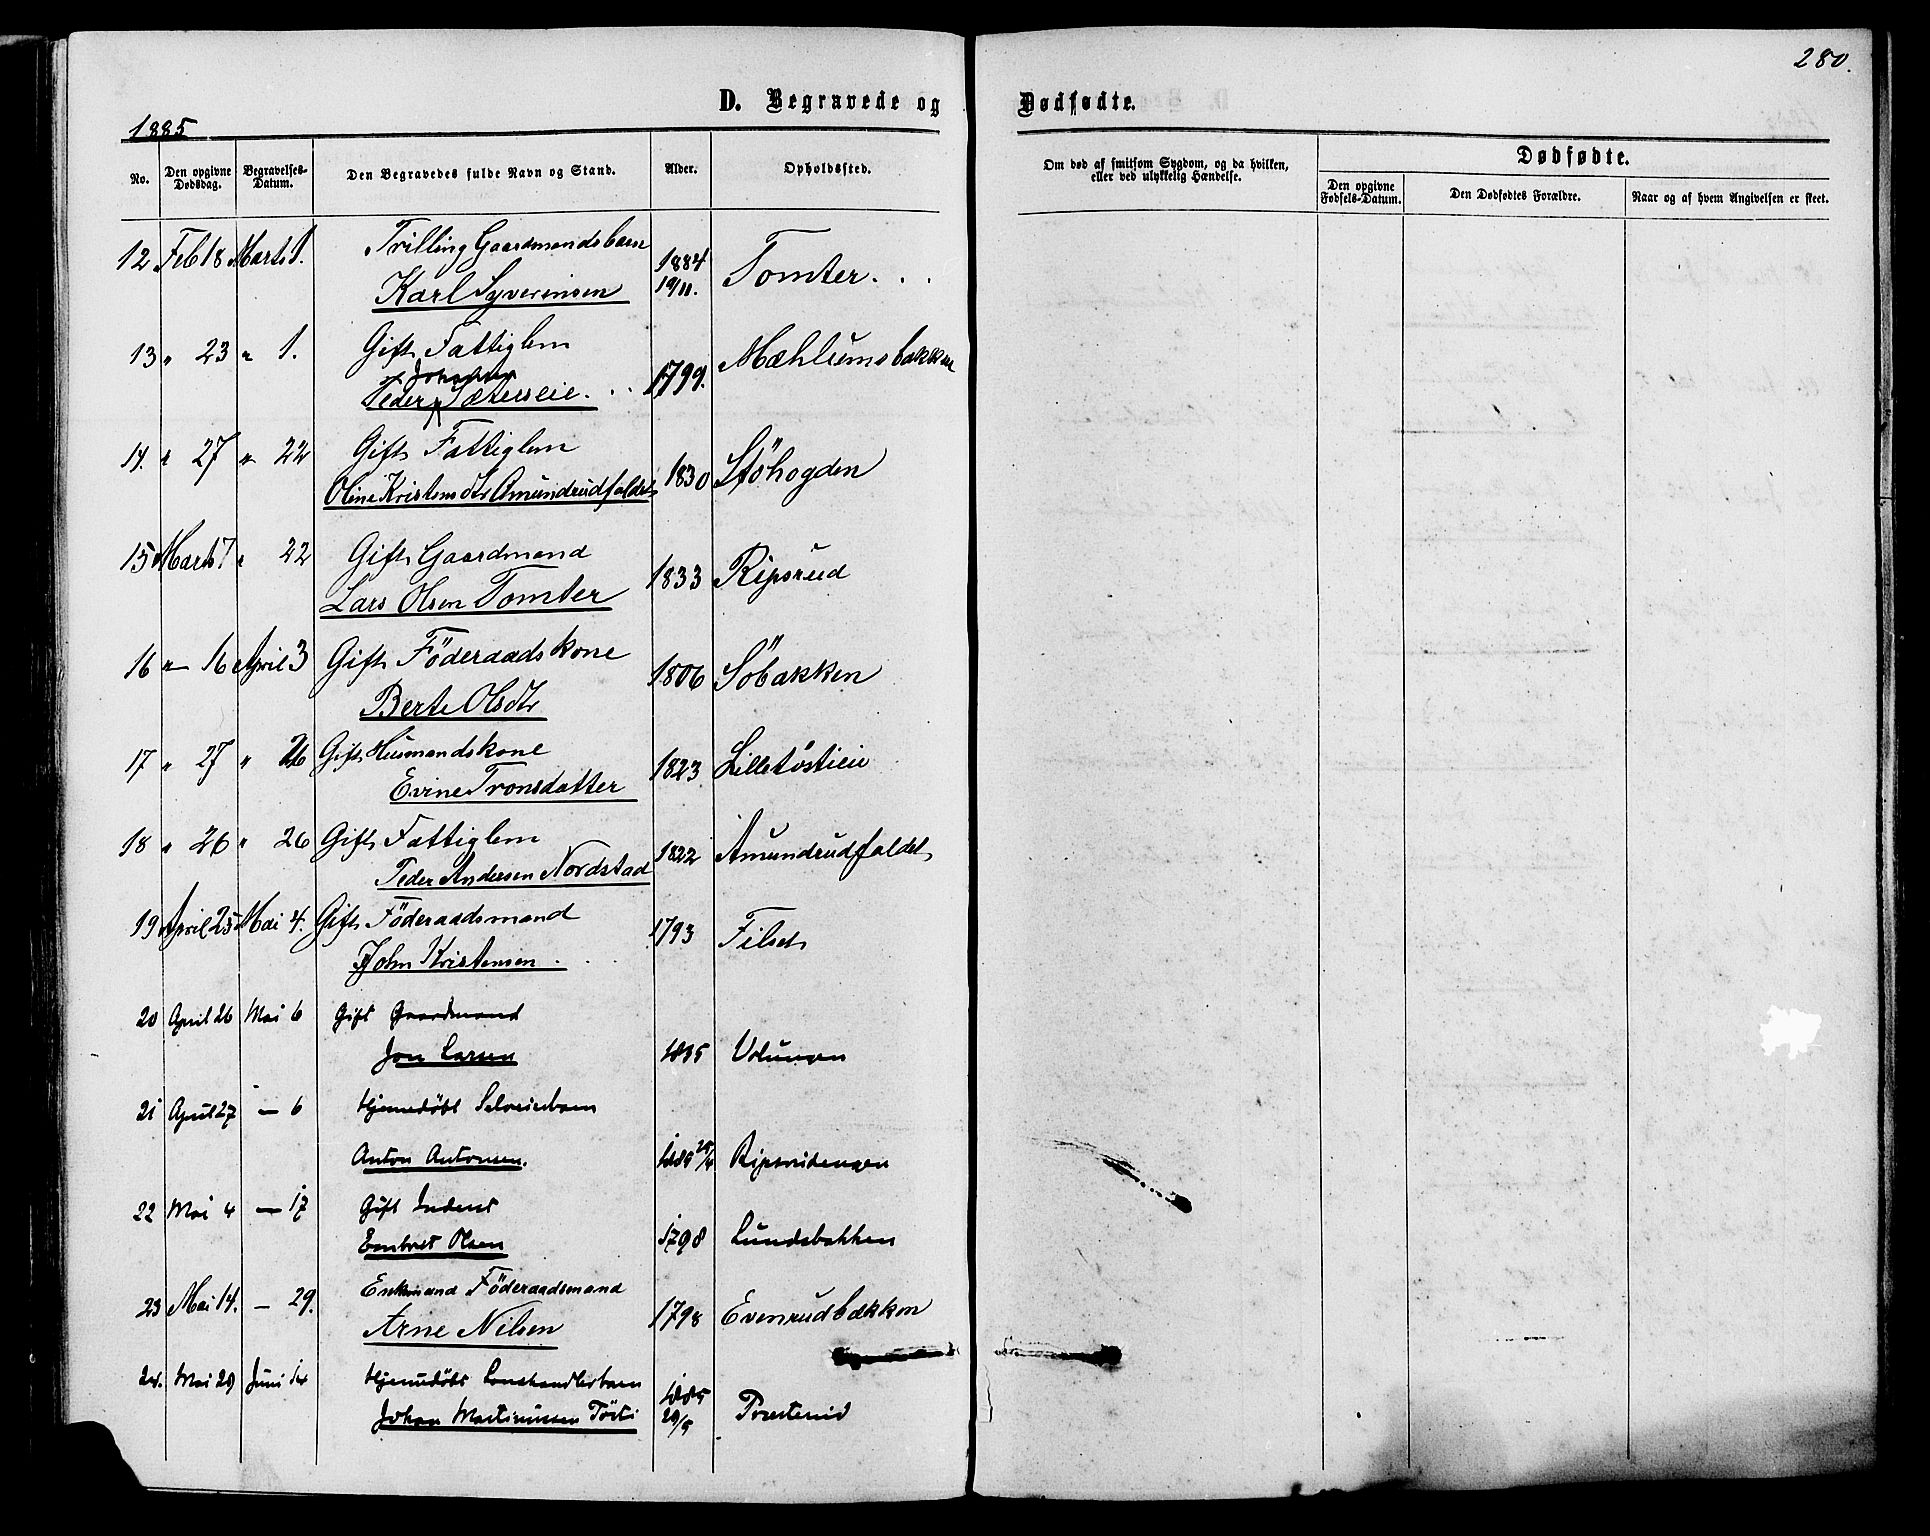 280.
D. Begravede og Dødfødte.
1885
No.
Den opgivne Dødsdag.
Begravelses-Datum.
Den Begravedes fulde Navn og Stand.
Alder.
Opholdssted.
Om død af smitsom Sygdom, og da hvilken, eller ved ulykkelig Hændelse.
Dødfødte.
Den opgivne Fødsels-Datum.
Den Dødfødtes Forældre.
Naar og af hvem Angivelsen er skeet.
12 Feb 18 Marts 1. Trilling Gaardmandsbarn
Karl Syverinsen 1884 19/11. Tomter
13 " 23 " 1. Gift Fattiglem
Peder Johnsen Sæterseie. 1799. Mæhlumsbakken
14. " 27 " 22 Gift Fattiglem
Oline Kristensdtr Amundrudfaldet 1830 Støhogden
15 Marts 7 " 22 Gift Gaardmand
Lars Olsen Tomter 1833 Ripsrud
16 " 16 April 3 Gift Föderaadskone
Berte Olsdtr 1806 Söbakken
17 " 27 " 26 Gift Husmandskone
Evine Tronsdatter 1823 Lilletøstieie
18 " 26 " 26 Gift Fattiglem
Peder Andersen Nordstad 1822 Amundrudfaldet
19 April 25 Mai 4. Gift Föderaadsmand
John Kristensen 1793 Filset
20 April 26 Mai 6 Gift Gaardmand
Jon Larsen 1835
21 April 27 — 6 Hjemedøbt Selveierbarn
Anton Antonsen. 1885 25/4 Ripsrudengen
22 Mai 4 — 17 Gift Inderst
Embret Olsen 1798 Lundsbakken
23 Mai 14. — 29. Enkmand Föderaadsmand
Arne Nilsen 1798 Evenrudbakken
24. Mai 29 Juni 14 Hjemedøbt Landhandlerbarn
Johan Martinussen Tösti 1885 20/5 Presterud